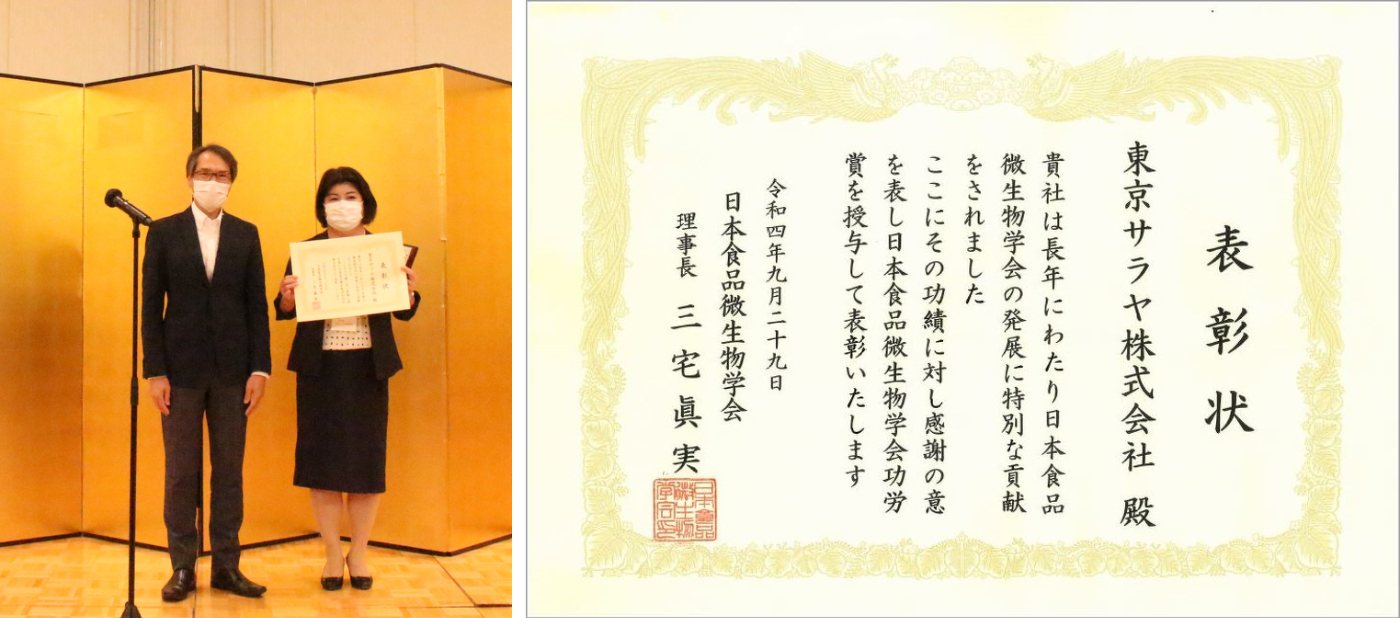 表彰状
東京サラヤ株式会社 殿
貴社は長年にわたり日本食品
微生物学会の発展に特別な貢献
をされました
ここにその功績に対し感謝の意
を表し日本食品微生物学会功労
賞を授与して表彰いたします
令和四年九月二十九日
日本食品微生物学会
理事長 三宅眞実
日本食品
微生物
学会印